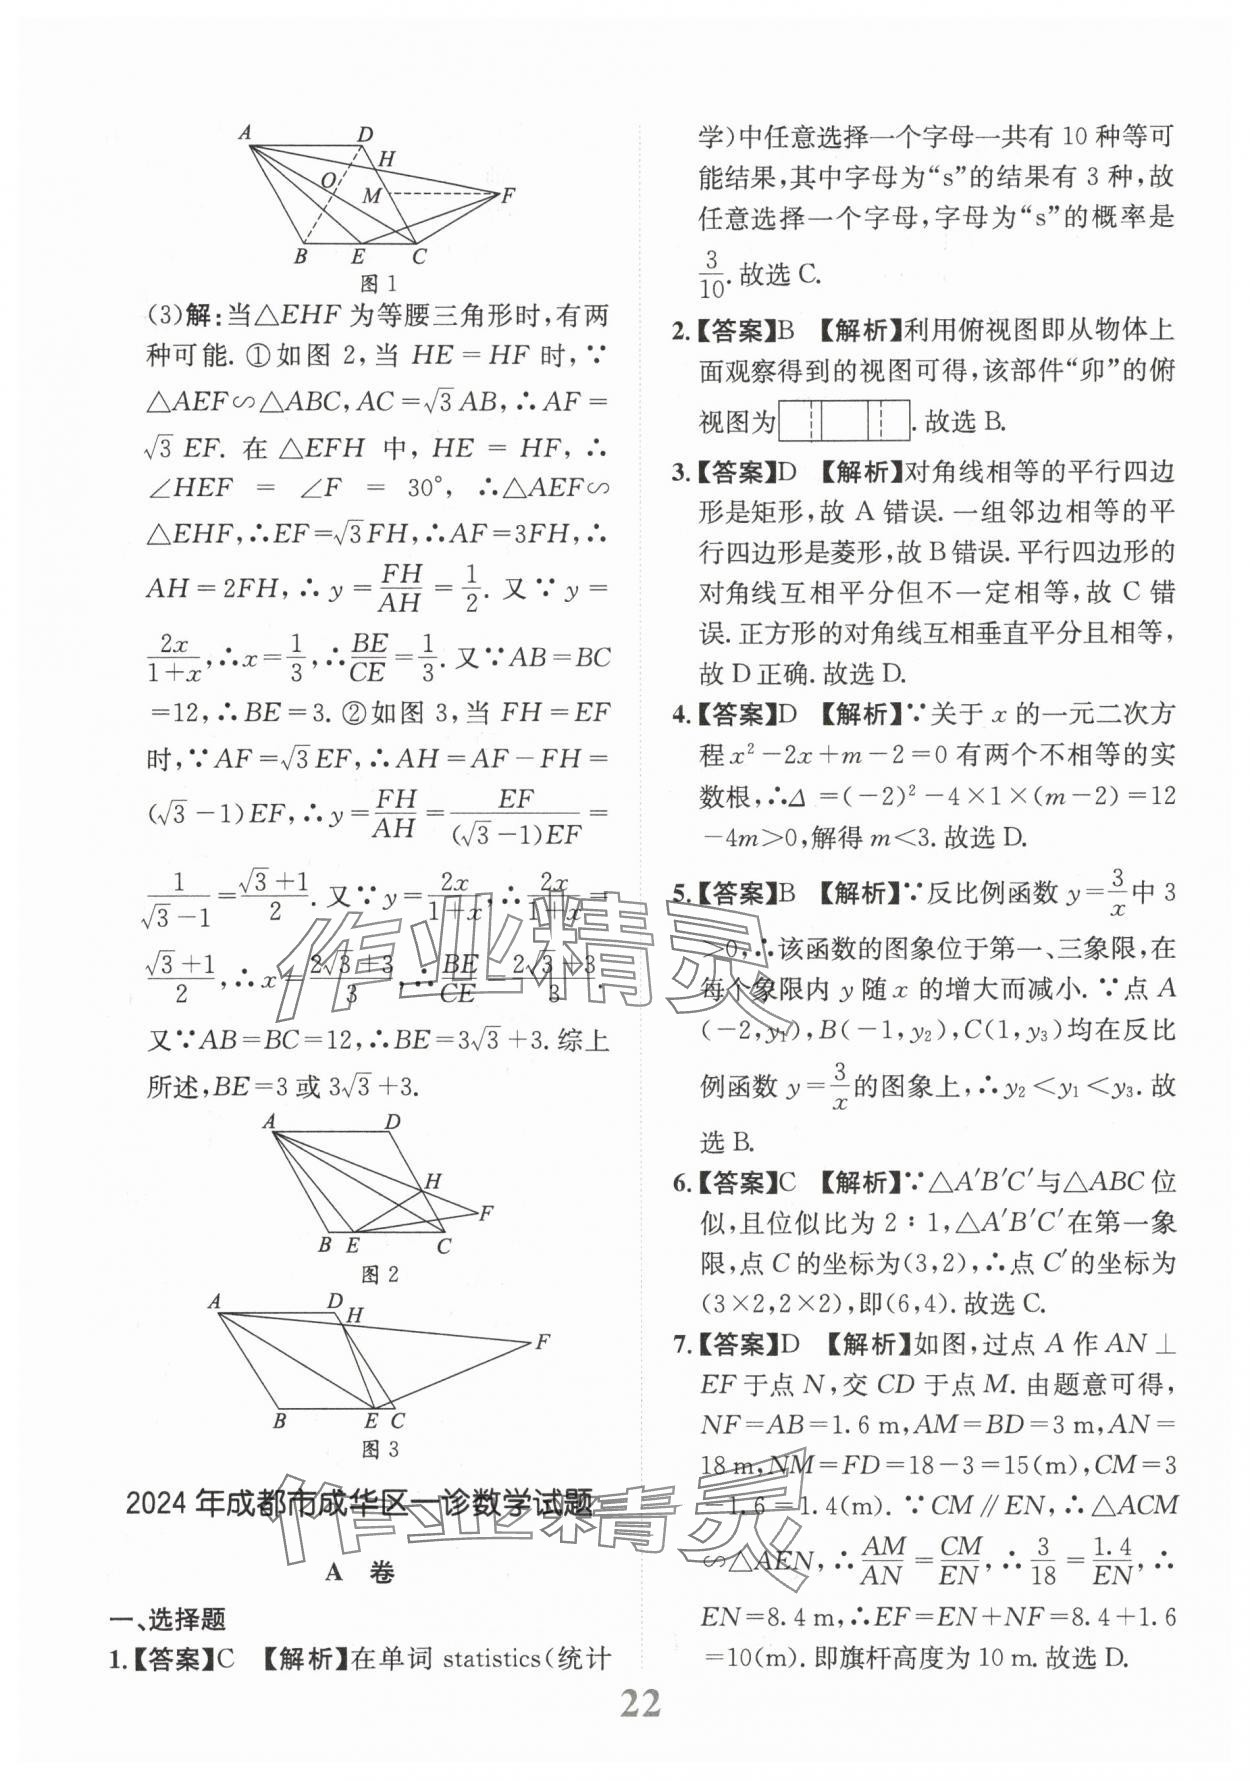 A D H O M F B E C
图 1
(3)解:当△EHF 为等腰三角形时,有两
种可能. ①如图 2,当 HE = HF 时,∵
△AEF∽△ABC,AC=√3AB,∴AF=
√3 EF. 在 △EFH 中, HE = HF, ∴
∠HEF = ∠F = 30°, ∴△AEF∽
△EHF,∴EF=√3FH,∴AF=3FH,∴
AH=2FH,∴y=FH/AH=1/2. 又∵y=
2x/(1+x),∴x=1/3,∴BE/CE=1/3. 又∵AB=BC
=12,∴BE=3. ②如图 3,当 FH=EF
时,∵AF=√3EF,∴AH=AF-FH=
(√3-1)EF,∴y=FH/AH=EF/((√3-1)EF)=
1/(√3-1)=(√3+1)/2. 又∵y=2x/(1+x),∴2x/(1+x)=
(√3+1)/2,∴x=(2√3+3)/3,∴BE/CE=(2√3+3)/3.
又∵AB=BC=12,∴BE=3√3+3. 综上
所述,BE=3 或 3√3+3.
A D H F B E C
图 2
A D H F B E C
图 3
2024 年成都市成华区一诊数学试题
A 卷
一、选择题
1.【答案】C 【解析】在单词 statistics(统计
学)中任意选择一个字母一共有 10 种等可
能结果,其中字母为“s”的结果有 3 种,故
任意选择一个字母,字母为“s”的概率是
3/10. 故选 C.
2.【答案】B 【解析】利用俯视图即从物体上
面观察得到的视图可得,该部件“卯”的俯
视图为 . 故选 B.
3.【答案】D 【解析】对角线相等的平行四边
形是矩形,故 A 错误. 一组邻边相等的平
行四边形是菱形,故 B 错误. 平行四边形的
对角线互相平分但不一定相等,故 C 错
误. 正方形的对角线互相垂直平分且相等,
故 D 正确. 故选 D.
4.【答案】D 【解析】∵关于 x 的一元二次方
程 x²-2x+m-2=0 有两个不相等的实
数根,∴Δ=(-2)²-4×1×(m-2)=12
-4m>0,解得 m<3. 故选 D.
5.【答案】B 【解析】∵反比例函数 y=3/x 中 3
>0,∴该函数的图象位于第一、三象限,在
每个象限内 y 随 x 的增大而减小. ∵点 A
(-2,y₁),B(-1,y₂),C(1,y₃)均在反比
例函数 y=3/x 的图象上,∴y₂<y₁<y₃. 故
选 B.
6.【答案】C 【解析】∵△A′B′C′与△ABC 位
似,且位似比为 2∶1,△A′B′C′在第一象
限,点 C 的坐标为(3,2),∴点 C′的坐标为
(3×2,2×2),即(6,4). 故选 C.
7.【答案】D 【解析】如图,过点 A 作 AN⊥
EF 于点 N,交 CD 于点 M. 由题意可得,
NF=AB=1.6 m,AM=BD=3 m,AN=
18 m,NM=FD=18-3=15(m),CM=3
-1.6=1.4(m). ∵CM∥EN,∴△ACM
∽△AEN,∴AM/AN=CM/EN,∴3/18=1.4/EN,∴
EN=8.4 m,∴EF=EN+NF=8.4+1.6
=10(m). 即旗杆高度为 10 m. 故选 D.
22
作业精灵
作业精灵